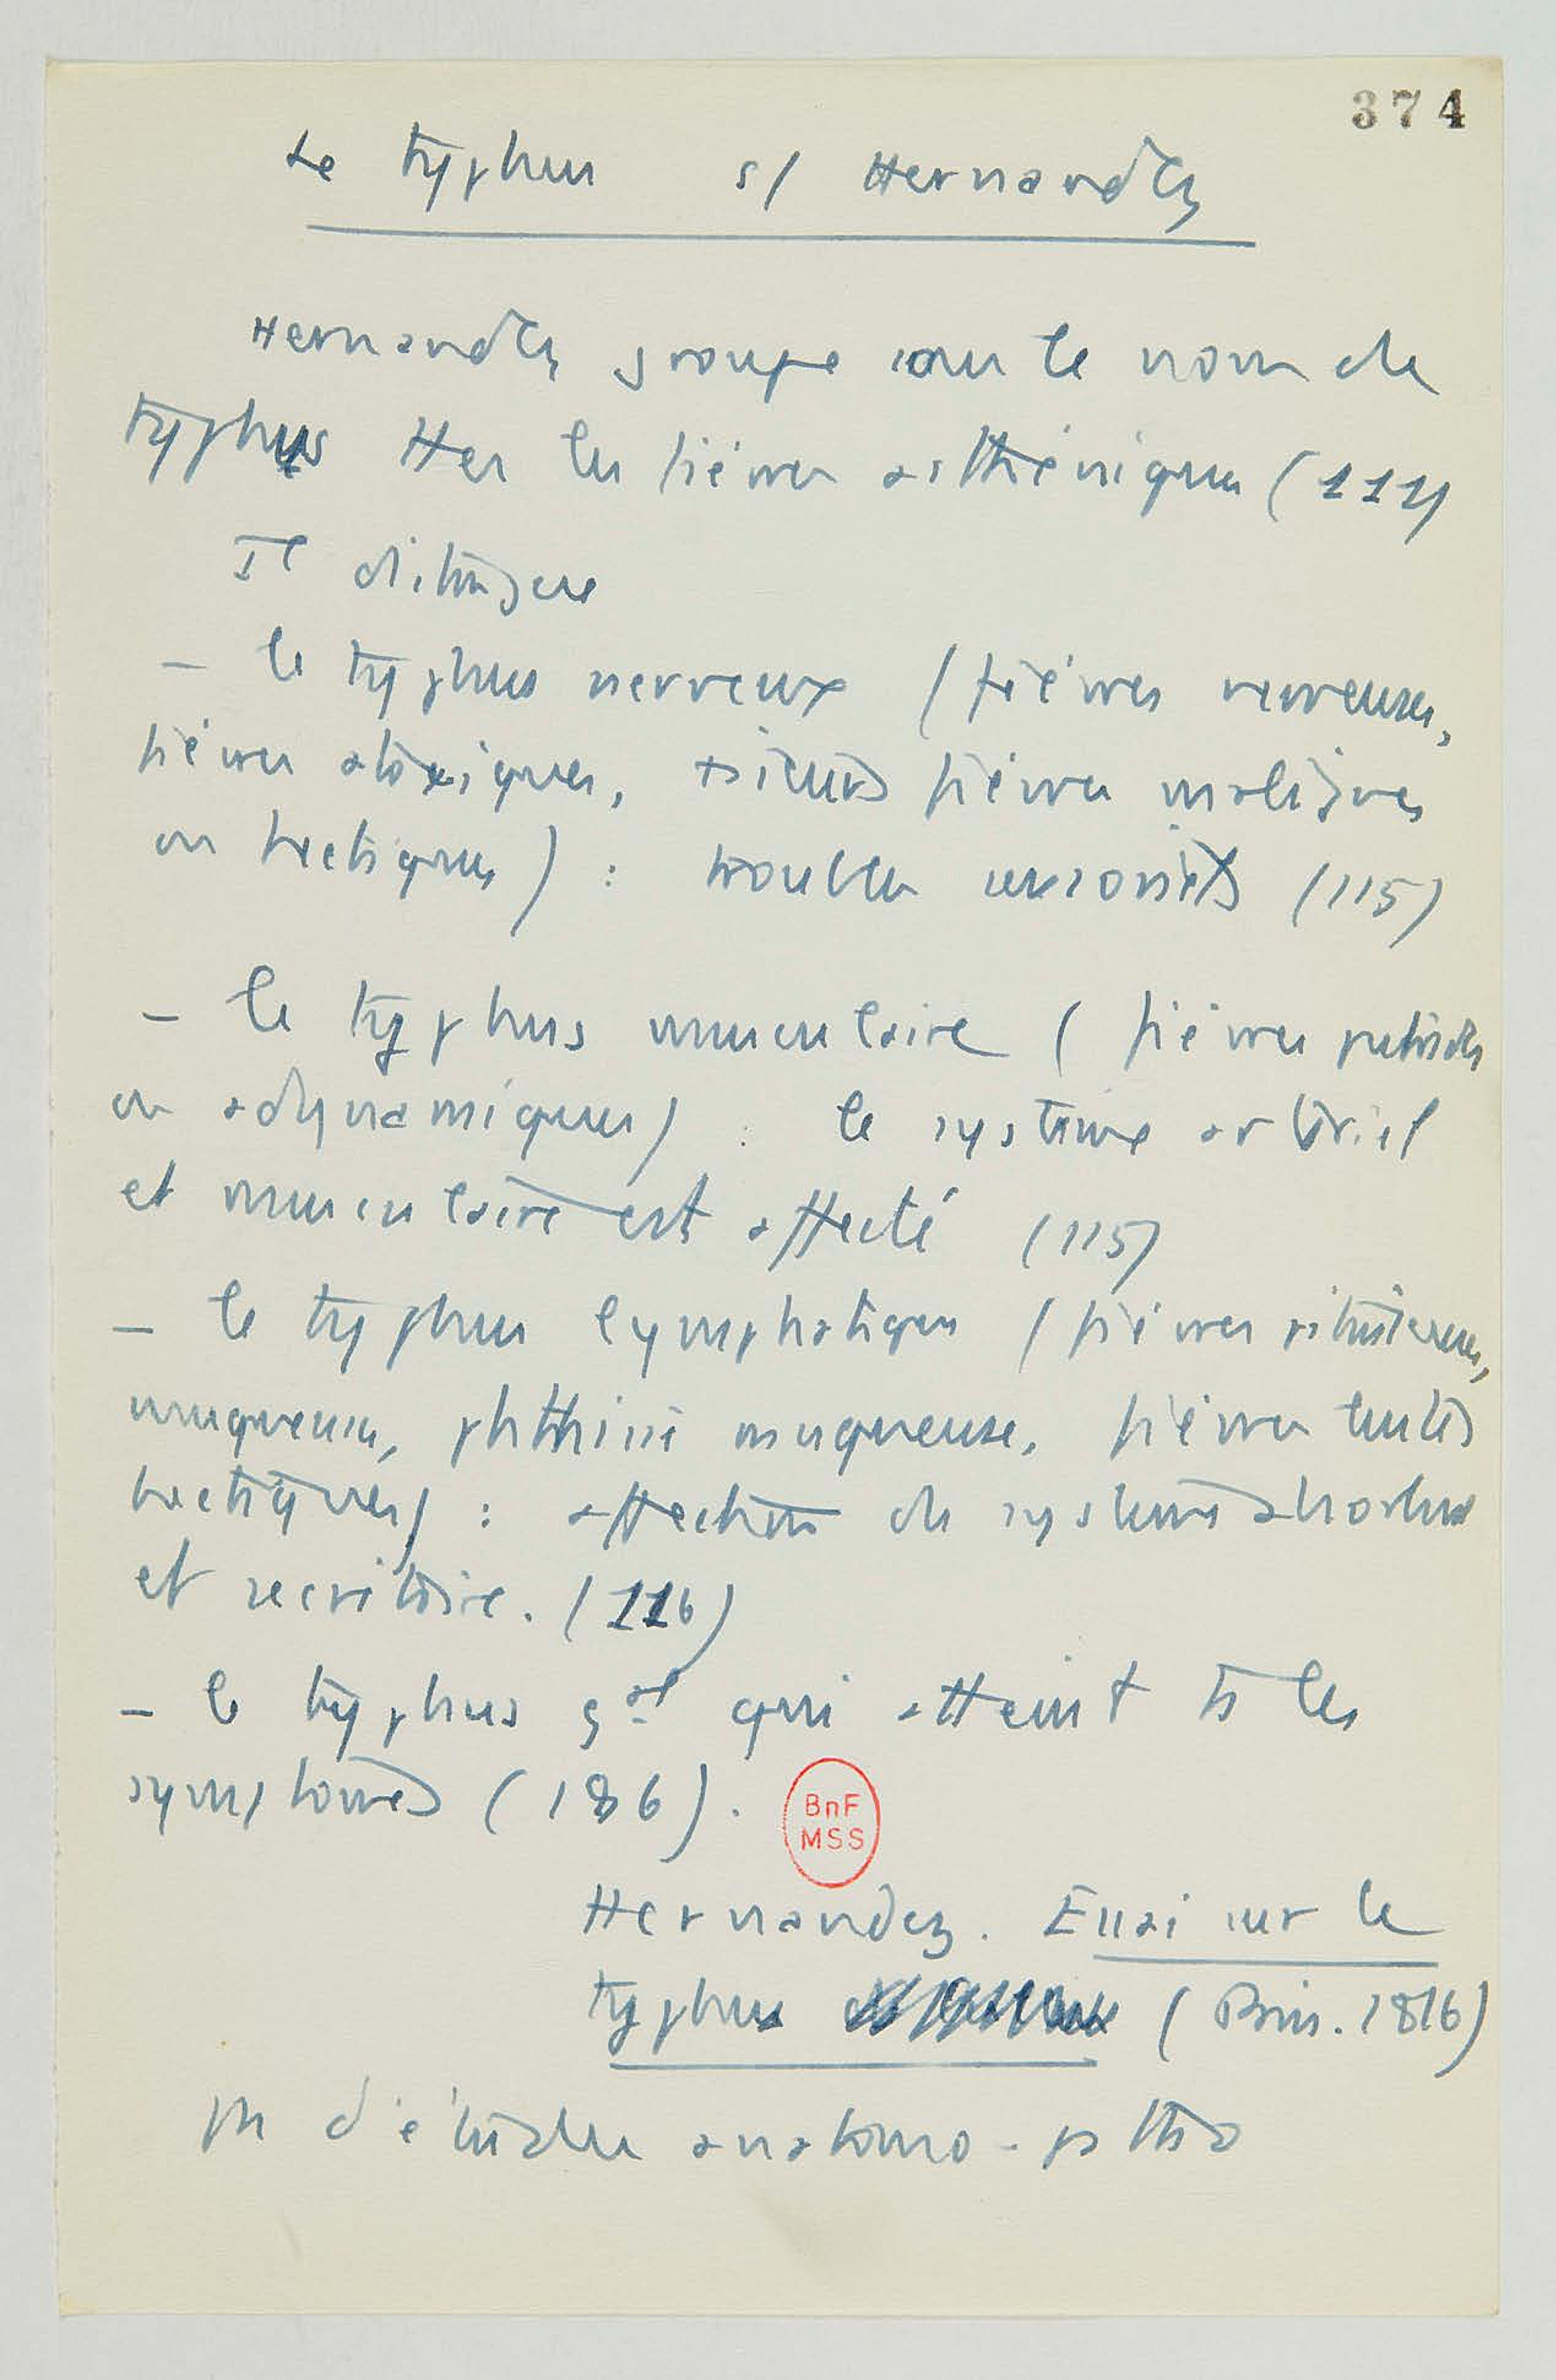 374
Le typhus s/ Hernandez
Hernandez groupe sous le nom de
typhus ttes les fièvres asthéniques (111)
Il distingue
– le typhus nerveux (fièvres nerveuses,
fièvres ataxiques, fièvres malignes
ou hectiques) : troubles sensoriels (115)
– le typhus musculaire (fièvres putrides
ou adynamiques) : le système artériel
et musculaire est affecté (115)
– le typhus lymphatique (fièvres pituiteuses,
muqueuses, phthisie muqueuse, fièvres lentes
hectiques) : affection du système absorbant
et secrétoire. (116)
– le typhus gal qui atteint ts les
symptomes (186).
BnF
MSS
Hernandez. Essai sur le
typhus (Paris. 1816)
pas d'études anatomo-patho